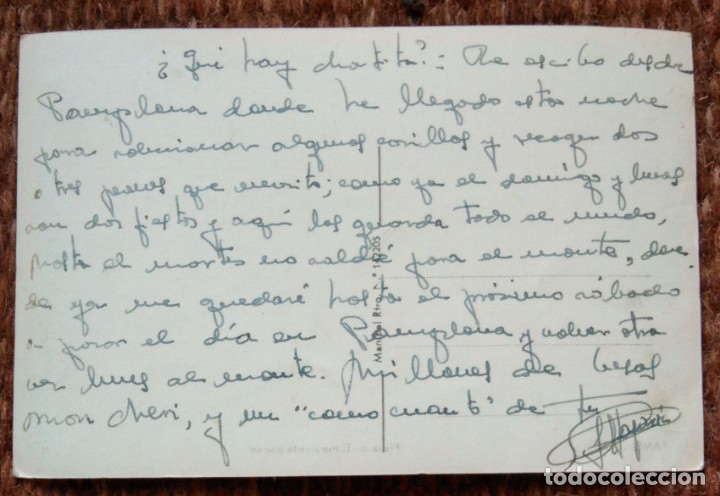 ¿Qué hay chatita?: Te escribo desde
Pamplona donde he llegado esta noche
para solucionar algunas cosillas y recoger dos
o tres que necesito; como ya el domingo y lunes
son dos fiestas y aquí las guarda todo el mundo,
hasta el martes no saldré para el monte, don-
de ya me quedaré hasta el próximo sábado
a pasar el día en Pamplona, y volver otra
vez lunes al monte. Millones de besos
mon cheri, y un "como cuanto" de tu
Manipel Rtro. n.° 142205
todocoleccion.net